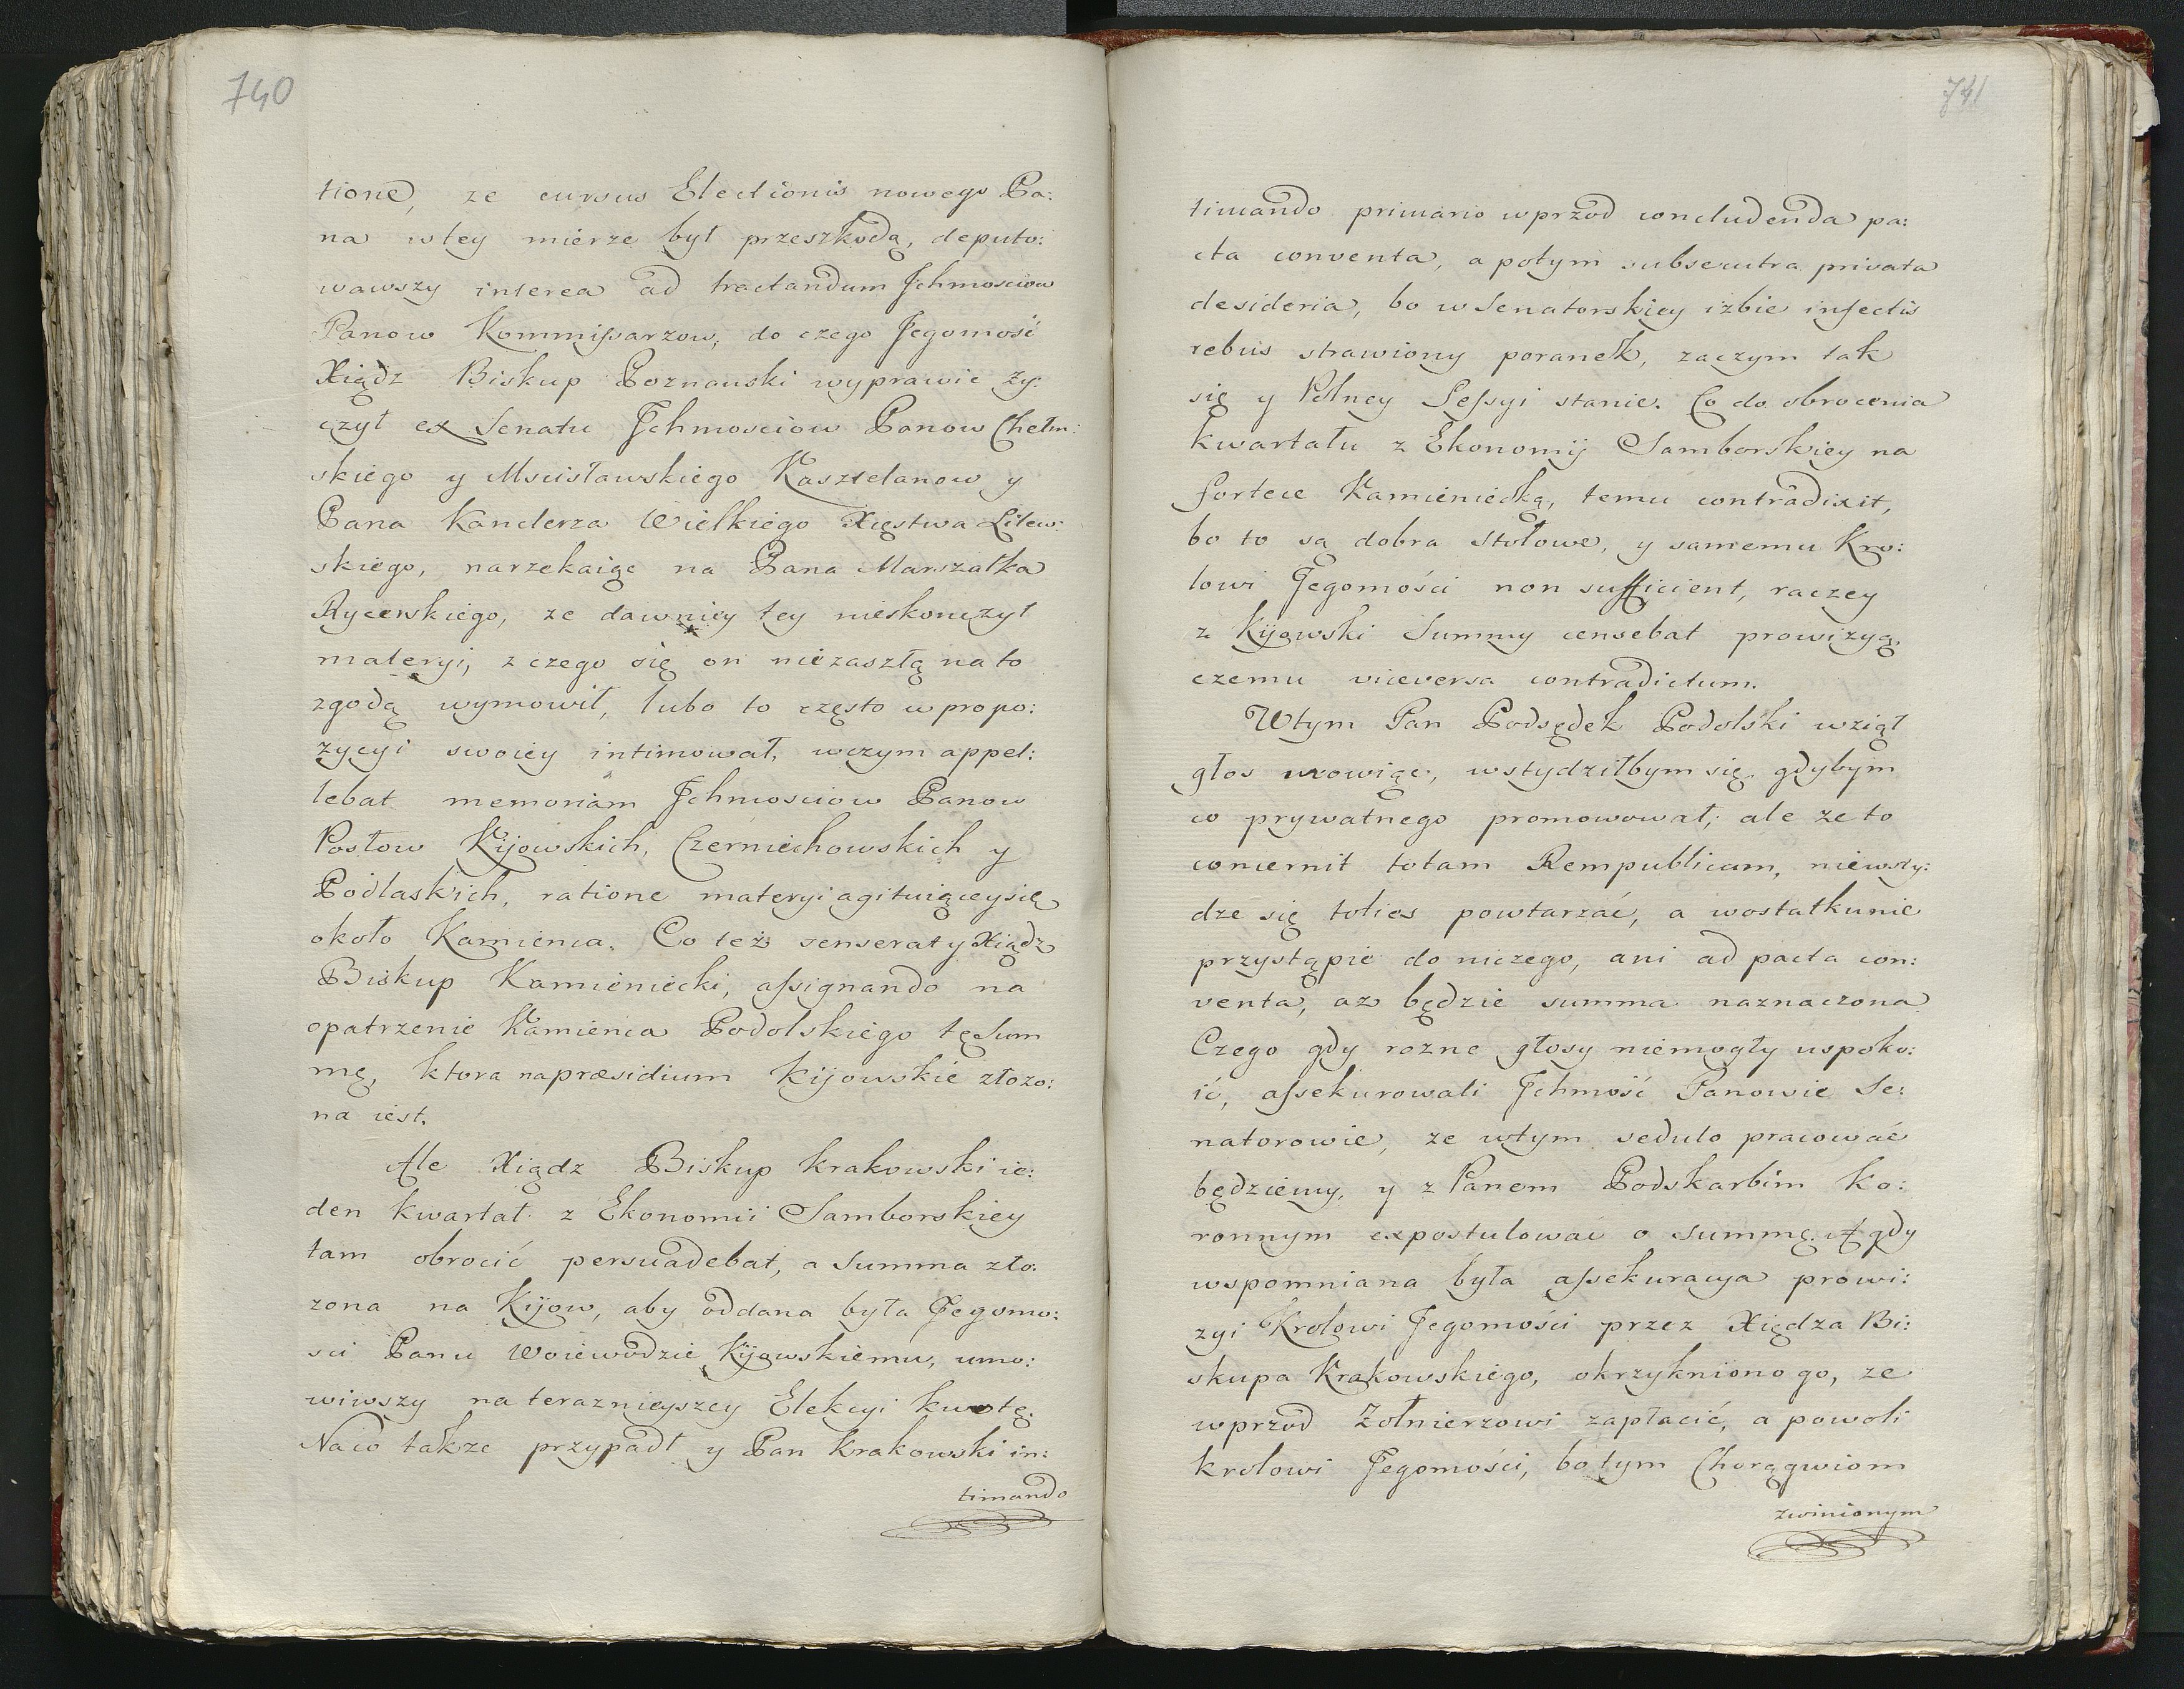 740
tione, ze cursus Electionis nowego Pa:
na wtey mierze był przeszkodą, deputo:
wawszy interea ad tractandum Jchmosciow
Panow Kommissarzow, do czego Jegomość
Xiądz Biskup Poznanski wyprawic zy:
czył ex Senatu Jchmosciow Panow Chełm:
skiego y Mscisławskiego Kasztelanow y
Pana Kanclerza Wielkiego Xięstwa Litew:
skiego, narzekaiąc na Pana Marszałka
Rycerskiego, ze dawniey tey nieskonczył
materyi, z czego się on niezaszłą na to
zgodą wymowił, lubo to często w propo:
zycyi swoiey intimował, wczym appel:
lebat memoriam Jchmosciow Panow
Posłow Kijowskich, Czerniechowskich y
Podlaskich, ratione materyi agituiącey się
około Kamienca. Co też senserat y Xiądz
Biskup Kamieniecki, assignando na
opatrzenie Kamienca Podolskiego tę Sum
mę, ktora na præsidium Kijowskie złozo:
na iest.
Ale Xiądz Biskup Krakowski ie:
den kwartał z Ekonomii Samborskiey
tam obrocić persuadebat, a Summa zło:
zona na Kijow, aby oddana była Jegomo:
sci Panu Woiewodzie Kijowskiemu, umo:
wiwszy na terazniejszey Elekcyi kwotę.
Na co takze przypadł y Pan Krakowski in:
timando
741
timando primario wprzod concludenda pa:
cta conventa, a potym subsecutra privata
desideria, bo w Senatorskiey izbie infectis
rebus strawiony poranek, zaczym tak
się y Polney Sessyi stanie. Co do obrocenia
kwartału z Ekonomij Samborskiey na
fortece Kamieniecką, temu contradixit,
bo to są dobra stołowe, y samemu Kro:
lowi Jegomości non sufficient, raczey
z Kijowski Summy censebat prowizyą.
czemu viceversa contradictum.
Wtym Pan Podsędek Podolski wziął
głos mowiąc, wstydziłbym się gdybym
co prywatnego promowował; ale ze to
concernit totam Rempublicam, niewsty:
dze się toties powtarzać, a wostatku nie
przystąpie do niczego, ani ad pacta con:
venta, az będzie summa naznaczona
Czego gdy rozne głosy niemogły uspoko:
ić, assekurowali Jchmość Panowie Se:
natorowie, ze wtym sedulo pracować
będziemy, y z Panem Podskarbim Ko:
ronnym expostulować o summę. A gdy
wspomniana była assekuracya prowi:
zyi Krolowi Jegomości przez Xiędza Bi:
skupa Krakowskiego, okrzykniono go, ze
wprzod Zołnierzowi zapłacić, a powoli
krolowi Jegomości, bo tym Chorągwiom
zwinionym